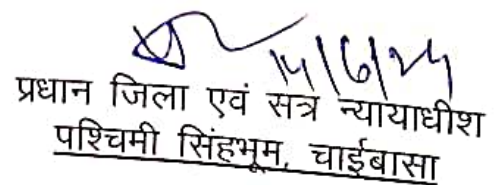 14/6/24
प्रधान जिला एवं सत्र न्यायाधीश
पश्चिमी सिंहभूम, चाईबासा